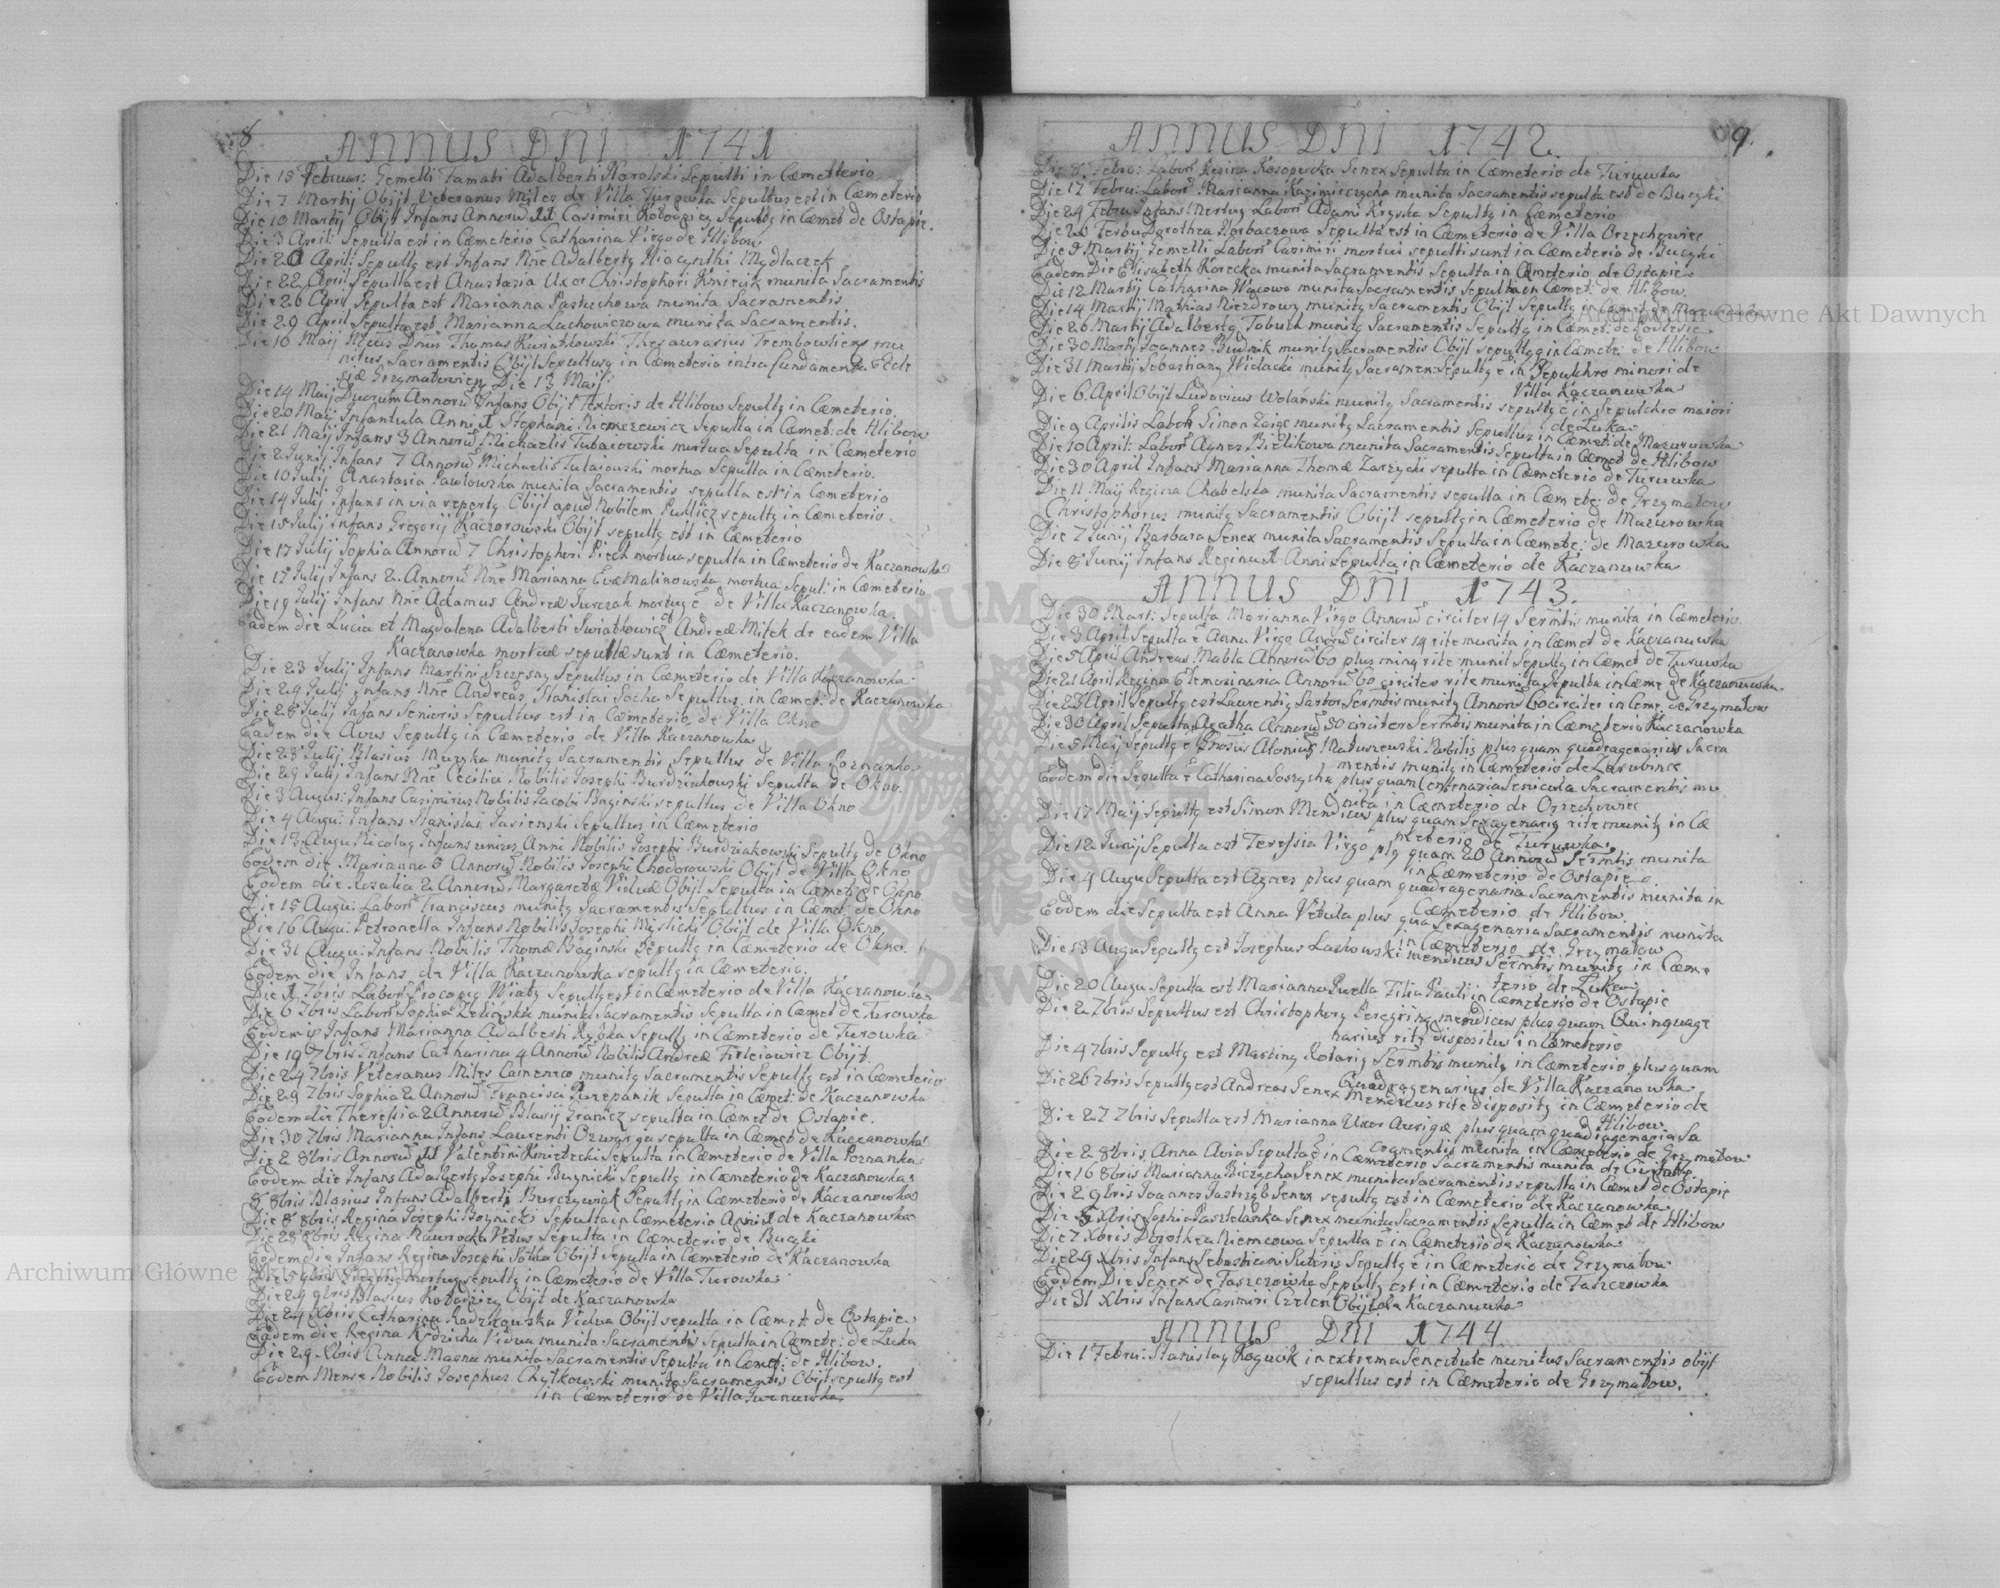 8
ANNUS DNI 1741
Die 15 Februar: Gemelli Famati Adalberti Korolski Sepulti in Cæmetterio
Die 7 Martij Obijt Veteranus Miles de Villa Turowka Sepultus est in Cæmeterio
Die 10 Martij Obijt Infans Annorũ Casimiri Sepultg in Cæmet de Ostapie.
Die 3 April: Sepulta est in Cæmeterio Catharina Virgo de Hlibow
Die 20 April: Sepultg est Infans Nñe Adalbertg Hiacynthi Mydlaczek
Die 22 April Sepulta est Anastasia Uxor Christophori Kmiecik munita Sacramentis
Die 26 April Sepulta est Marianna Pastuchowa munita Sacramentis
Die 29 April Sepulta est Marianna Lachowiczowa munita Sacramentis.
Die 10 Maij Dnus Thomas Kwiatkowski Thesaurarius Trembowliens mu
nitus Sacramentis Obijt Sepultusq in Cæmeterio intra fundamenta Eccle
siæ Grzymalovien Die 13 Maij.
Die 14 Maij Duorum Annorũ Infans Obijt Textoris de Hlibow Sepultg in Cæmeterio.
Die 20 Maij Infantula Anni 1 Stephani Niemczewicz Sepulta in Cæmet: de Hlibow
Die 21 Maij Infans 3 Annorũ Michaelis Tubaiowski mortua Sepulta in Cæmeterio
Die 2 Junij Infans 7 Annorũ Michaelis Tubaiowski mortua Sepulta in Cæmeterio.
Die 10 Julij Anastasia Pawlowska munita Sacramentis sepulta est in Cæmeterio
Die 14 Julij Infans in via repertg Obijt apud Nobilem sepultg in Cæmeterio.
Die 15 Julij Infans Gregorij Kaczorowski Obijt sepultg est in Cæmeterio
Die 17 Julij Sophia Annorũ 7 Christophori Piech mortua sepulta in Cæmeterio de Kaczanowka
Die 17 Julij Infans 2 Annorũ Nñe Marianna Evæ Malinowska mortua Sepul: in Cæmeterio
Die 19 Julij Infans Nñe Adamus Andreæ Jurczak mortug ẽ de Villa Kaczanowka
Eadem die Lucia et Magdalena Adalberti Swiatkowicz et Andreæ Mitek de eadem Villa
Kaczanowka mortuæ sepultæ sunt in Cæmeterio.
Die 23 Julij Infans Martini Szczesny Sepultus in Cæmeterio de Villa Kaczanowka
Die 24 Julij Infans Nñe Andreas Stanislai Socha Sepultus in Cæmet: de Kaczanowka
Die 28 Julij Infans Senioris Sepultus est in Cæmeterio de Villa Okno
Eadem die Avus Sepultg in Cæmeterio de Villa Kaczanowka
Die 28 Julij Blasius munitg Sacramentis Sepultus de Villa Poznanka
Die 29 Julij Infans Nñe Cecilia Nobilis Josephi Burdziakowski Sepulta de Okno.
Die 3 Augus: Infans Casimirus Nobilis Jacobi Baginski sepultus de Villa Okno
Die 4 Augu: Infans Stanislai Jasienski Sepultus in Cæmeterio
Die 13 Augu Nicolag Infans unius Anni Nobilis Josephi Burdziakowski Sepultg de Okno
Eodem die Marianna 5 Annorũ Nobilis Josephi Chodorowski Obijt de Villa Okno
Eodem die Rozalia 2 Annorũ Margaretæ Viduæ Obijt Sepulta in Cæmet: de Okno
Die 15 Augu: Labors Franciscus munitg Sacramentis Sepultus in Cæmet: de Okno
Die 16 Augu: Petronella Infans Nobilis Josephi Myslicki Obijt de Villa Okno
Die 31 Augu: Infans Nobilis Thomæ Baginski Sepultg in Cæmeterio de Okno.
Eodem die Infans de Villa Kaczanowka sepultg in Cæmeterio.
Die 1 7bris Labors Procopig Sepultg est in Cæmeterio de Villa Kaczanowka
Die 6 7bris Labors Sophia munita Sacramentis Sepulta in Cæmet de Turowka
Eodem Infans Marianna Adalberti Sepultg in Cæmeterio de Turowka
Die 19 7bris Infans Catharina 4 Annorũ Nobilis Andreæ Firleiowicz Obijt.
Die 24 7bris Veteranus Miles munitg Sacramentis Sepultg est in Cæmeterio
Die 29 7bris Sophia 2 Annorũ Francisci Sczepanik Sepulta in Cæmet: de Kaczanowka
Eodem die Theressia 2 Annorũ Blasij Granicz sepulta in Cæmet de Ostapie.
Die 30 7bris Marianna Infans Laurenti sepulta in Cæmet de Kaczanowka
Die 2 8bris Annorũ Valentini Kmietecki Sepulta in Cæmeterio de Villa Poznanka
Eodem die Infans Adalbertg Josephi Buynicki Sepultg in Cæmeterio de Kaczanowka
8 8bris Blasius Infans Adalberti Burczywek Sepultg in Cæmeterio de Kaczanowka
Die 8 8bris Regina Josephi Boynicki Sepulta in Cæmeterio Anni 1 de Kaczanowka
Die 28 8bris Regina Nawrocka Vetus Sepulta in Cæmeterio de Bucyki
Eodem die Infans Regina Josephi Obijt sepulta in Cæmeterio de Kaczanowka
Die 5 9bris mortug sepultg in Cæmeterio de Villa Turowka
Die 24 9bris Blasius Kolodziey Obijt de Kaczanowka
Die 24 Xbris Catharina Radzikowska Vidua Obijt sepulta in Cæmet: de Ostapie
Eadem die Regina Kidricka Vidua munita Sacramentis Sepulta in Cæmete: de Luka
Die 29 Xbris Anna Magna munita Sacramentis Sepulta in Cæmet: de Hlibow.
Eodem Mense Nobilis Josephus Chylkowski munitg Sacramentis Obijt sepultg est
in Cæmeterio de Villa Iwanowka
9.
ANNUS DNI 1742.
Die 8 Febru: Labors Regina Kosopercka Senex Sepulta in Cæmeterio de Turowka
Die 17 Febru: Labors Marianna Kazimirczycha munita Sacramentis sepulta est de Bucyki
Die 24 Febru Infans Mertug Labors Adami Kryska Sepultg in Cæmeterio
Die 28 Febru Dorothea Horbaczowa Sepulta est in Cæmeterio de Villa Orzechowiec
Die 9 Martij Gemelli Labors Casimiri mortui sepulti sunt in Cæmeterio de Bucyki
Eadem Die Elisabeth Korecka munita Sacramentis Sepulta in Cæmeterio de Ostapie
Die 12 Martij Catharina Wacowa munita Sacramentis Sepulta in Cæmet: de Hlibow
Die 14 Martij Mathias Niezdrowy munitg Sacramentis Obijt Sepultg in Cæmet: de Mazurowka
Die 26 Martij Adalbertg Tobuch munitg Sacramentis Sepultg in Cæmet: de Podlesie
Die 30 Martij Joannes Budnik munitg Sacramentis Obijt sepultg q in Cæmete: de Hlibow
Die 31 Martij Sebastiang Widacki munitg Sacramen: Sepultg ẽ in Sepulchro minori de
Villa Kaczanuwka
Die 6 April Obijt Ludovicus Wolanski munitg Sacramentis sepultg ẽ in sepulchro maiori
de Luka
Die 9 Aprilis Labors Simon Zaiac munitg Sacramentis Sepultus in Cæmet: de Mazurowka
Die 10 April: Labors Agnes Bielikowa munita Sacramentis Sepulta in Cæmet de Hlibow
Die 30 April Infans Marianna Thomæ Zarzycki sepulta in Cæmeterio de Turuwka
Die 11 Maij Regina Chabelska munita Sacramentis sepulta in Cæmete: de Grzymalow
Christophorus munitg Sacramentis Obijt sepultg in Cæmeterio de Mazurowka
Die 7 Junij Barbara Senex munita Sacramentis Sepulta in Cæmete: de Mazurowka
Die 8 Junij Infans Regina 1 Anni Sepulta in Cæmeterio de Kaczanuwka
ANNUS DNI 1743.
Die 30 Mart: Sepulta Marianna Virgo Annorũ circiter 14 Sermtis munita in Cæmeterio.
Die 3 April Sepulta ẽ Anna Virgo Anorũ circiter 14 rite munita in Cæmet de Kaczanuwka
Die 5 April Andreas Mabla Annorũ 60 plus ming rite munit Sepultg in Cæmet de Turuwka
Die 21 April Regina Elemozinaria Annorũ 60 circiter rite munita Sepulta in Cæme: de Kaczanuwka
Die 23 April Sepultg est Laurentig Sartor Sermtis munitg Annorũ 60 circiter in Cæme: de Grzymalow
Die 30 April Sepulta Agatha Annorũ 30 circiter Sermtis munita in Cæmeterio Kaczanowka
Die 5 Maij Sepultg ẽ Gnosus Aloniug Matuszewski Nobilis plus quam quadragenarius Sacra
mentis munitg in Cæmeterio de Zarubince
Eodem die Sepulta ẽ Catharina Soszycha plus quam Centenaria Senicula Sacramentis mu
nita in Cæmeterio de Orzechowiec
Die 17 Maij sepultg est Simon Mendicus plus quam Sexagenarig rite munitg in Cæ
meterio de Turuwka
Die 12 Junij Sepulta est Teressia Virgo plg quam 20 Annorũ Sermtis munita
in Cæmeterio de Ostapie
Die 4 Augu Sepulta est Agnes plus quam quadragenaria Sacramentis munita in
Cæmeterio de Hlibow
Eodem die Sepulta est Anna Vetula plus qua Sexagenaria Sacramentis munita
in Cæmeterio de Grzymalow
Die 13 Augu Sepultg est Josephus Laskowski mendicus Sermtis munitg in Cæme
terio de Luka
Die 20 Augu Sepulta est Marianna Puella Filia Pauli in Cæmeterio de Ostapie
Die 2 7bris Sepultus est Christophorg Peregring mendicus plus quam Quinquage
narius rite dispositus in Cæmeterio
Die 4 7bris Sepultg est Marting Rotarig Sermtis munitg in Cæmeterio plus quam
Quadragenarius de Villa Kaczanowka
Die 26 7bris Sepultg est Andreas Senex Mendicus rite dispositg in Cæmeterio de
Hlibow
Die 27 7bris Sepulta est Marianna Uxor Aurigæ plus quam quadragenaria Sa
cramentis munita in Cæmeterio de Grzymalow
Die 2 8bris Anna Avia Sepulta ẽ in Cæmeterio Sacramentis munita de Ostapie
Die 16 8bris Marianna Biczycha Senex munita Sacramentis sepulta in Cæmet de Ostapie
Die 2 9bris Joannes Jastrzęb Senex sepultg est in Cæmeterio de Kaczanowka
Die 5 Xbris Sophia Pasztelanka Senex munita Sacramentis Sepulta in Cæmet de Hlibow
Die 7 Xbris Dorothea Niemcowa Sepulta ẽ in Cæmeterio de Kaczanowka
Die 29 Xbris Infans Sebastiani Sutoris Sepultg ẽ in Cæmeterio de Grzymalow
Eodem Die Senex de Faszczowka Sepultg est in Cæmeterio de Faszczowka
Die 31 Xbris Infans Casimiri Czelen Obijt de Kaczanuwka
ANNUS DNI 1744
Die 1 Febru: Stanislag Rogucik in extrema Senectute munitus Sacramentis obijt
sepultus est in Cæmeterio de Grzymalow.
Archiwum Główne Akt Dawnych
Archiwum Główne Akt Dawnych
ARCHIWUM GŁÓWNE AKT DAWNYCH